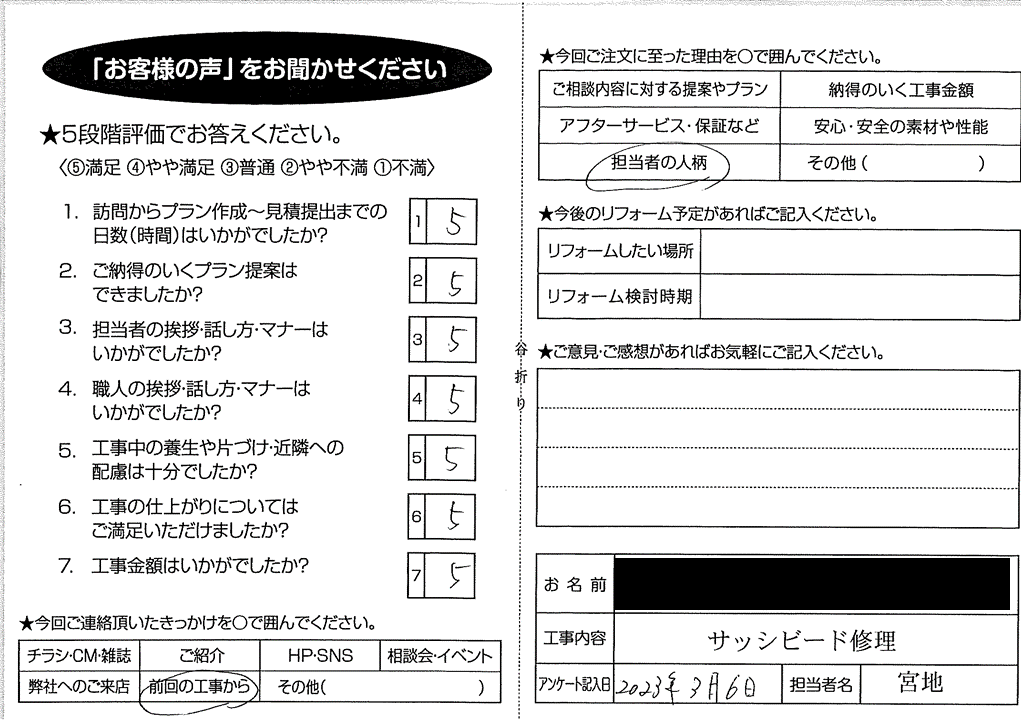 「お客様の声」をお聞かせください
★5段階評価でお答えください。
〈⑤満足 ④やや満足 ③普通 ②やや不満 ①不満〉
1. 訪問からプラン作成〜見積提出までの
日数(時間)はいかがでしたか?
1 5
2. ご納得のいくプラン提案は
できましたか?
2 5
3. 担当者の挨拶・話し方・マナーは
いかがでしたか?
3 5
4. 職人の挨拶・話し方・マナーは
いかがでしたか?
4 5
5. 工事中の養生や片づけ・近隣への
配慮は十分でしたか?
5 5
6. 工事の仕上がりについては
ご満足いただけましたか?
6 5
7. 工事金額はいかがでしたか?
7 5
★今回ご連絡頂いたきっかけを○で囲んでください。
チラシ・CM・雑誌 ご紹介 HP・SNS 相談会・イベント
弊社へのご来店 前回の工事から その他( )
谷折り
★今回ご注文に至った理由を○で囲んでください。
ご相談内容に対する提案やプラン 納得のいく工事金額
アフターサービス・保証など 安心・安全の素材や性能
担当者の人柄 その他( )
★今後のリフォーム予定があればご記入ください。
リフォームしたい場所
リフォーム検討時期
★ご意見・ご感想があればお気軽にご記入ください。
お名前
工事内容 サッシビード修理
アンケート記入日 2023年3月6日 担当者名 宮地